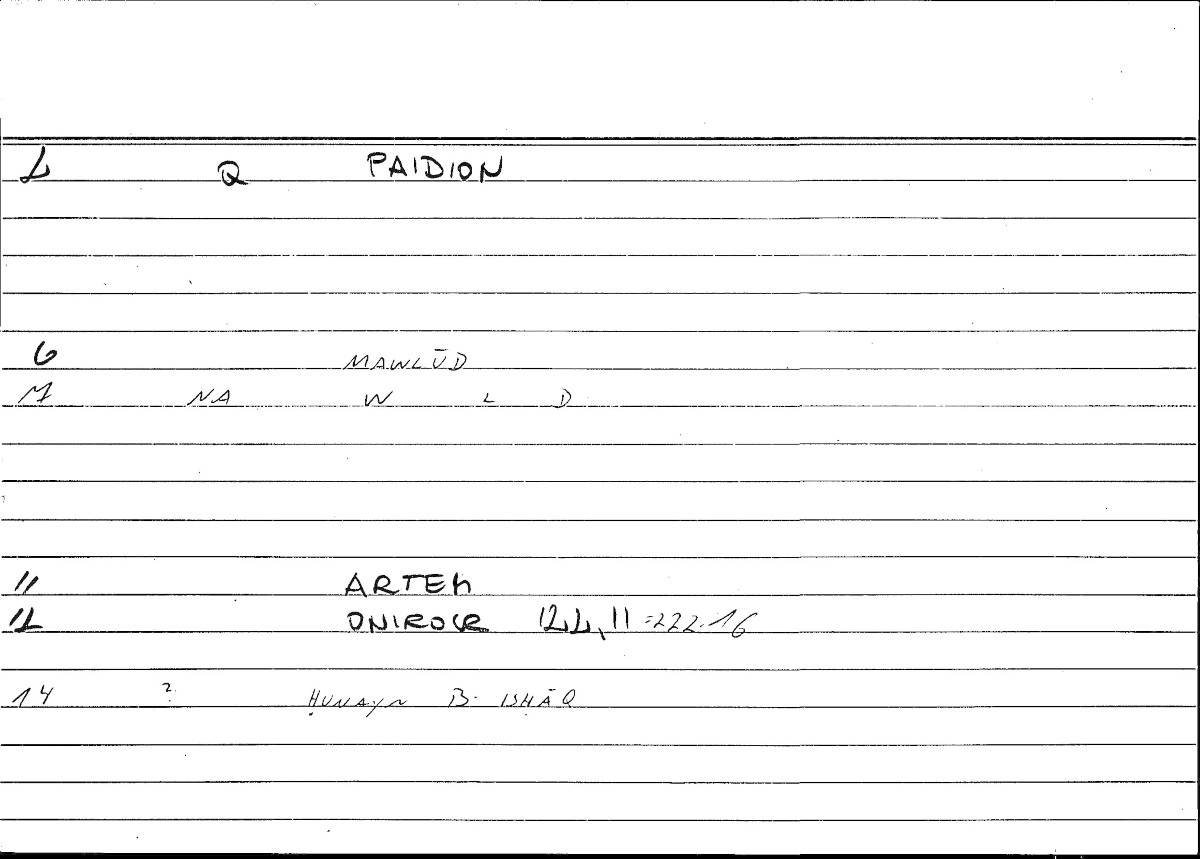 2 Q PAIDION
6 MAWLŪD
7 NA W L D
11 ARTEM
12 ONIROCR 122,11 =222.16
14 ? ḤUNAYN B. ISḤĀQ